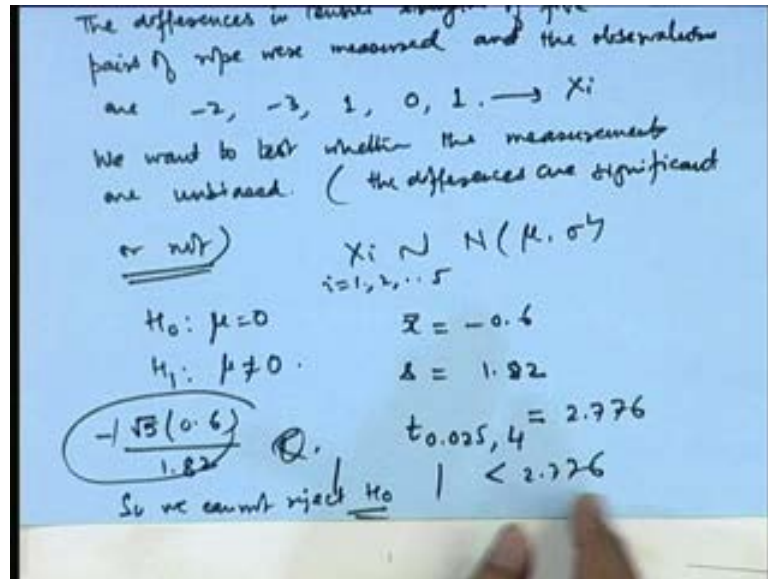 The differences in tensile strength of five
pairs of rope were measured and the observations
are -2, -3, 1, 0, 1. → Xi
We want to test whether the measurements
are unbiased. ( the differences are significant
or not) Xi N N( μ, σ²)
i=1, 2, .. 5
H₀: μ=0 x̄ = -0.6
H₁: μ≠0. s = 1.82
-| √5(0.6) / 1.82 t₀.₀₂₅, ₄ = 2.776
| | < 2.776
So we cannot reject H₀